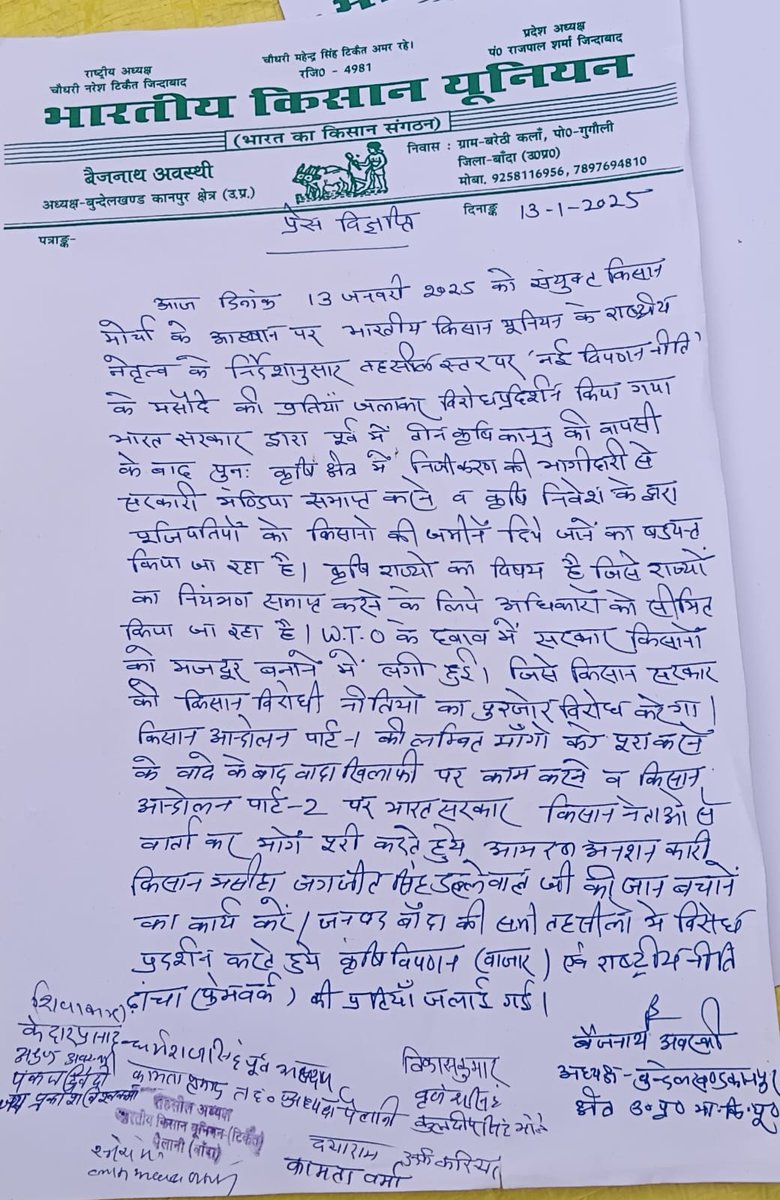 राष्ट्रीय अध्यक्ष
चौधरी नरेश टिकैत जिन्दाबाद
चौधरी महेन्द्र सिंह टिकैत अमर रहे।
रजि0 - 4981
प्रदेश अध्यक्ष
पं0 राजपाल शर्मा जिन्दाबाद
भारतीय किसान यूनियन
(भारत का किसान संगठन)
बैजनाथ अवस्थी
अध्यक्ष-बुन्देलखण्ड कानपुर क्षेत्र (उ.प्र.)
निवास : ग्राम-बरेठी कलाँ, पो0-गुगौली
जिला-बाँदा (उ0प्र0)
मोबा. 9258116956, 7897694810
पत्राङ्क-
दिनाङ्क 13-1-2025
प्रेस विज्ञप्ति
आज दिनांक 13 जनवरी 2025 को संयुक्ट किसान
मोर्चा के आह्वान पर भारतीय किसान यूनियन के राष्ट्रीय
नेतृत्व के निर्देशानुसार तहसील स्तर पर 'नई विपणन नीति'
के मसौदे की प्रतियाँ जलाकर विरोध प्रदर्शन किया गया
भारत सरकार द्वारा पूर्व में तीन कृषि कानून की वापसी
के बाद पुनः कृषि क्षेत्र में निजीकरण की भागीदारी से
सरकारी मण्डिया समाप्त करने व कृषि निवेश के द्वारा
पूजिपतियों को किसानो की जमीनें दिये जाने का षडयन्त
किया जा रहा है। कृषि राज्यों का विषय है जिसे राज्यों
का नियंत्रण समाप्त करने के लिये अधिकारों को सीमित
किया जा रहा है। W.T.O के दवाव में सरकार किसानों
को मजदूर बनाने में लगी हुई। जिसे किसान सरकार
की किसान विरोधी नीतियों का पुरजोर विरोध करेगा।
किसान आन्दोलन पार्ट-1 की लम्वित माँगो को पूरा करने
के वादे के बाद वादा खिलाफी पर काम करने व किसान
आन्दोलन पार्ट-2 पर भारत सरकार किसान नेताओ से
वार्ता कर मांगें पूरी करते हुये आमरण अनशन कारी
किसान मसीहा जगजीत सिंह डल्लेवाल जी की जान बचाने
का कार्य करें। जनपद बाँदा की सभी तहसीलों मे विरोध
प्रदर्शन करते हुये कृषि विपणन (बाजार) एवं राष्ट्रीय नीति
ढांचा (फ्रेमवर्क) की प्रतियाँ जलाई गई।
केदार प्रसाद
धर्मराज सिंह पूर्व अध्यक्ष
कामता प्रसाद तह0 अध्यक्ष पैलानी
विकास कुमार
कुलदीप सिंह
दयाराम
कामता वर्मा
तहसील अध्यक्ष
भारतीय किसान यूनियन-(टिकैत)
पैलानी (बाँदा)
बैजनाथ अवस्थी
अध्यक्ष-बुन्देलखण्ड कानपुर
क्षेत्र उ0प्र0 भा.कि.यू0